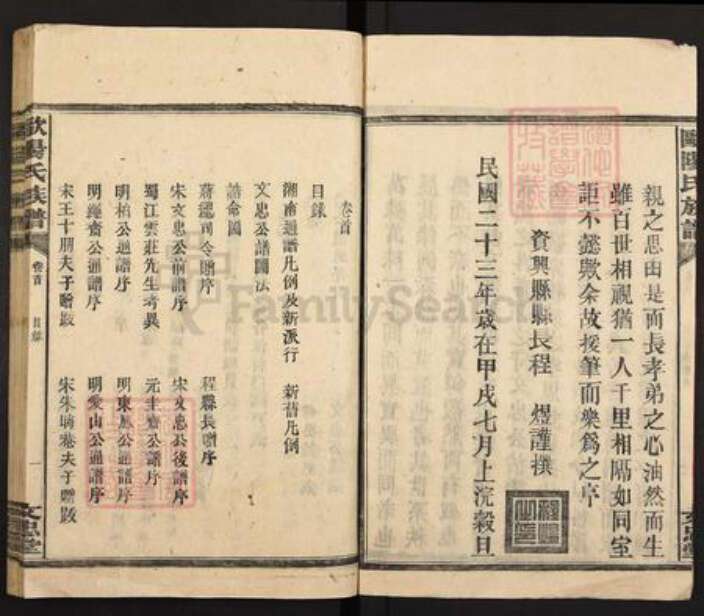 歐陽氏族譜
親之思由是而長孝弟之心油然而生
雖百世相視猶一人千里相隔如同室
詎不懿歟余故援筆而樂為之序
資興縣縣長程 煜謹撰
民國二十三年歲在甲戌七月上浣穀旦
文忠堂
卷首
目錄
湘南通譜凡例及新派行 新舊凡例
文忠公譜圖法
誥命圖
蔣總司令贈序 程縣長贈序
宋文忠公前譜序 宋文忠公後譜序
蜀江雲莊先生考異 元圭齋公譜序
明柏公通譜序 明東鳳公通譜序
明繩齋公通譜序 明愛山公通譜序
宋王十朋夫子贈跋 宋朱晦菴夫子贈跋
歐陽氏族譜
卷首 目錄 一
文忠堂
FamilySearch